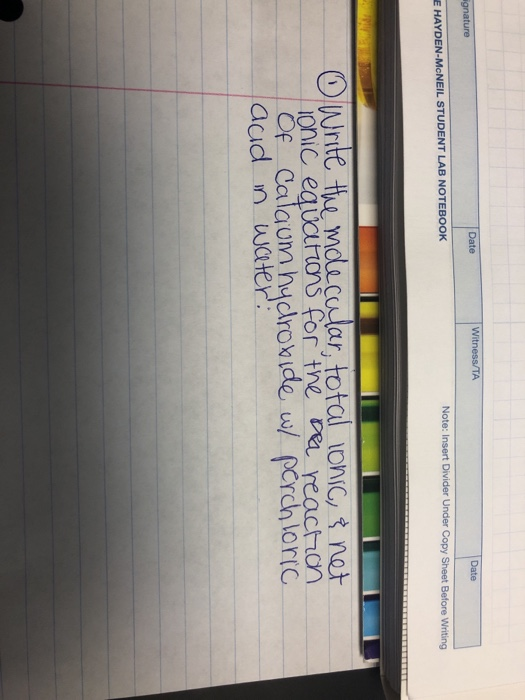 gnature
Date
Witness/TA
Date
E HAYDEN-McNEIL STUDENT LAB NOTEBOOK
Note: Insert Divider Under Copy Sheet Before Writing
① Write the molecular, total ionic, & net
ionic equations for the reaction
Of Calcium hydroxide w/ perchloric
acid in water: